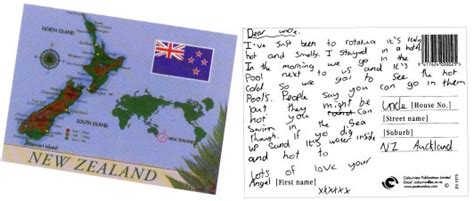 NORTH ISLAND
SOUTH ISLAND
NEW ZEALAND
NEW ZEALAND
Dear uncle.
I've Just been to rotorua it's really
hot and smelly. I stayed in a hotel
In the morning we go in the
Pool next to us and it's
cold so we go to see the hot
Pools. People say you can go in them
but they might be
hot you can
swim in the Sea
Though. If yo dig
up sand it's water inside
and hot to
Lots of love your
Angel [First name]
xxxxxx
Uncle [House No.]
[Street name]
[Suburb]
NZ Auckland